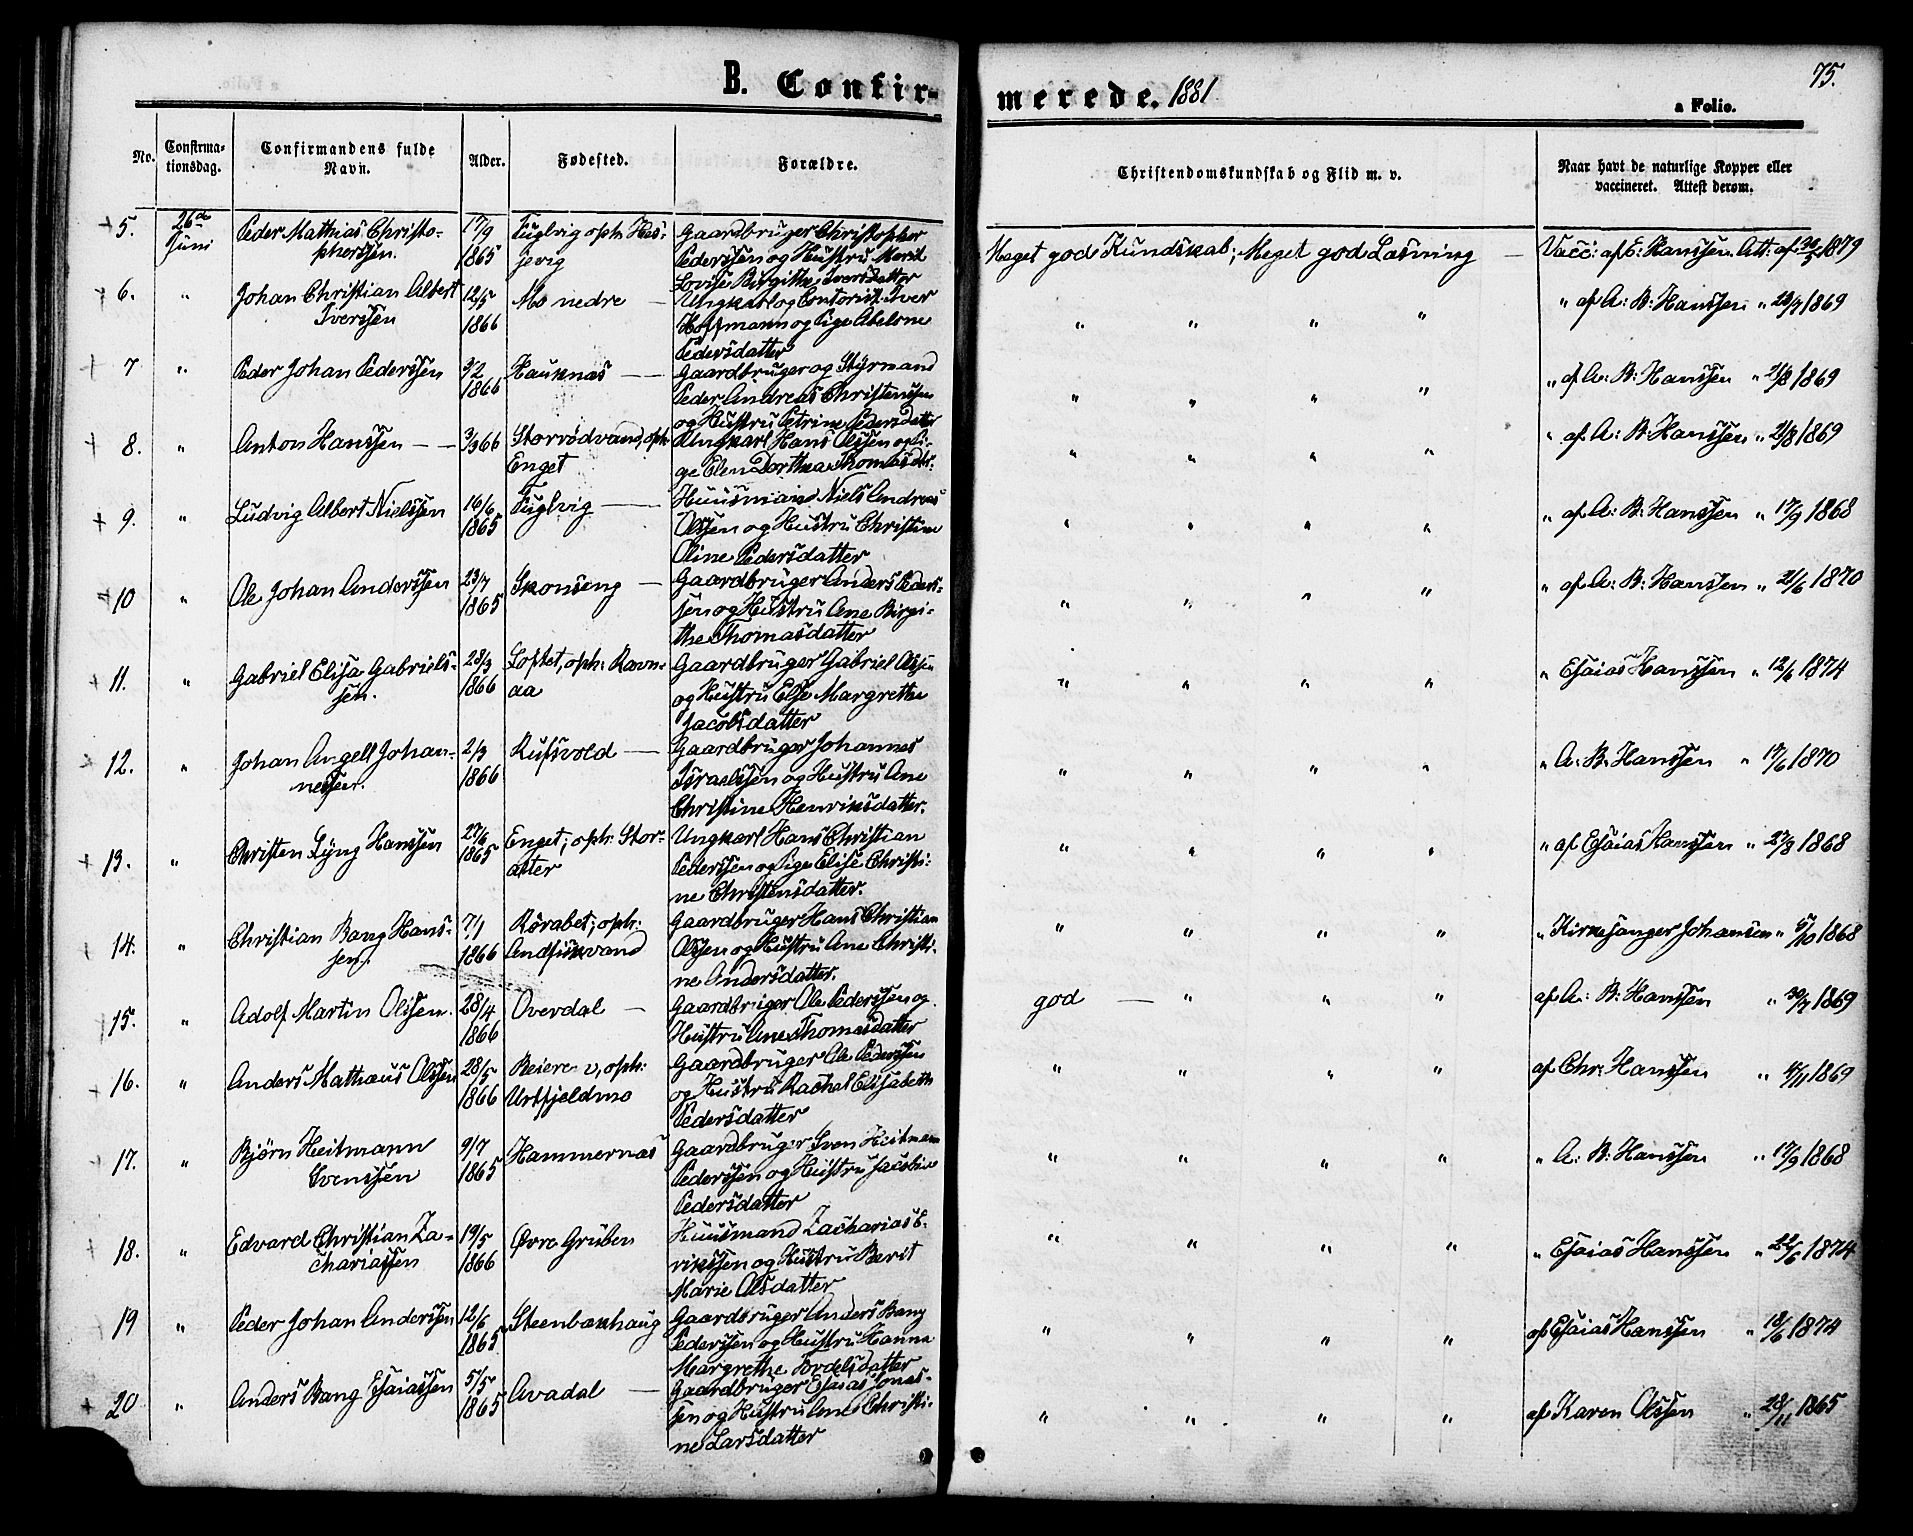 B. Confir-
merede. 1881
75.
a Folio.
No.
Confirma-
tionsdag.
Confirmandens fulde
Navn.
Alder.
Fødested.
Forældre.
Christendomskundskab og Flid m. v.
Naar havt de naturlige Kopper eller
vaccineret. Attest derom.
5. 26de Juni
Peder Mathias Christo-
phersen.
17/9
1865
Fuglvig oph: Hes-
jevig
Gaardbruger Christopher
Pederssen og Hustru Marit
Lovise Birgithe Iversdatter
Meget god Kundskab; Meget god Læsning —
Vacc: af E: Hanssen. Att: af 30/5 1879
6. "
Johan Christian Albert
Iverssen
12/5
1866
Mo nedre —
Ungkarl og Contorist Iver
Hoffmann og Pige Abelone
Pedersdatter
" " " "
" af A: B: Hanssen " 23/7 1869
7 "
Peder Johan Pederssen
3/2
1866
Hauknæs —
Gaardbruger og Styrmand
Peder Andreas Christenssen
og Hustru Petrine Pedersdatter
" " " "
" af A: B: Hanssen " 21/8 1869
8. "
Anton Hanssen —
3/3 66
Storvodvand, oph:
Enget
Ungkarl Hans Olssen og Pi-
ge Elen Dorthea Thomasdtr.
" " " "
" af A: B: Hanssen " 21/8 1869
9. "
Ludvig Albert Nielssen
16/6
1865
Fuglvig —
Huusmand Niels Andreas
Olssen og Hustru Christine
Oline Pedersdatter
" " " "
" af A: B: Hanssen " 17/9 1868
10 "
Ole Johan Anderssen
23/7
1865
Skonseng —
Gaardbruger Anders Peders-
sen og Hustru Ane Birgi-
the Thomasdatter
" " " "
" af A: B: Hanssen " 21/6 1870
11. "
Gabriel Elisa Gabriels-
sen.
28/3
1866
Loftet, oph: Ravn-
aa
Gaardbruger Gabriel Olssen
og Hustru Else Margrethe
Jacobsdatter
" " " "
" Esaias Hanssen " 12/6 1874
12. "
Johan Angell Johan-
nessen.
2/3
1866
Rufsvold —
Gaardbruger Johannes
Israelssen og Hustru Ane
Christine Henriksdatter.
" " " "
" A: B: Hanssen " 17/6 1870
13. "
Christen Lyng Hanssen
27/6
1865
Enget; oph: Stor-
alter
Ungkarl Hans Christian
Pederssen og Pige Elise Christi-
ne Christensdatter.
" " " "
" af Esaias Hanssen " 27/8 1868
14. "
Christian Bang Hans-
sen.
7/1
1866
Rørabet; oph:
Andfiskvand
Gaardbruger Hans Christian
Olssen og Hustru Ane Christi-
ne Andersdatter.
" " " "
" Kirkesanger Johansen " 5/10 1868
15. "
Adolf Martin Olssen.
28/4
1866
Overdal —
Gaardbruger Ole Pederssen og
Hustru Ane Thomasdatter
god — " " "
af A: B: Hanssen " 30/7 1869
16. "
Anders Mathæus Olssen
28/5
1866
Beieren, oph:
Urtfjeldmo
Gaardbruger Ole Pederssen
og Hustru Rachel Elisabeth
Pedersdatter
" " " "
af Chr: Hanssen " 4/11 1869
17. "
Bjørn Heitmann
Svenssen
9/7
1865
Hammernæs
Gaardbruger Sven Heitmann
Pederssen og Hustru Jacobine
Pedersdatter
" " " "
" A: B: Hanssen " 17/9 1868
18. "
Edvard Christian Za-
chariassen
19/5
1866
Øvre Gruben
Huusmand Zacharias E-
rikssen og Hustru Berit
Marie Olsdatter
" " " "
" Esaias Hanssen " 22/6 1874
19 "
Peder Johan Anderssen
12/6
1865
Steenbakhaug
Gaardbruger Anders Bang
Pederssen og Hustru Hanna
Margrethe Tordelsdatter
" " " "
af Esaias Hanssen " 18/6 1874
20 "
Anders Bang Esaiassen
5/5
1865
Avadal —
Gaardbruger Esaias Jonas-
sen og Hustru Ane Christi-
ne Larsdatter
" " " "
af Karen Olssen " 28/11 1865